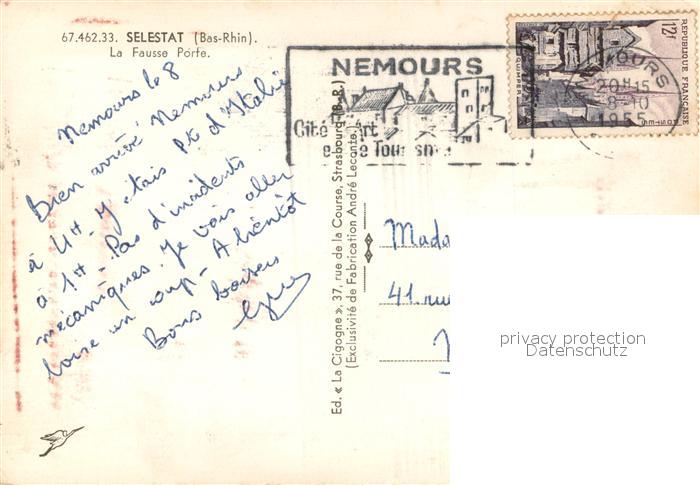 67.462.33. SELESTAT (Bas-Rhin).
La Fausse Porte.
Nemours le 8
Bien arrivé Nemours
à 4H. J'étais Pte d'Italie
à 1H. Pas d'incidents
mécaniques. Je vais aller
boire un coup. A bientôt
Bons baisers
Ed. « La Cigogne », 37, rue de la Course, Strasbourg (B.-R.)
(Exclusivité de Fabrication André Leconte)
NEMOURS
Cité d'Art
et de Tourisme
NEMOURS
20H15
8-10
1955
REPUBLIQUE FRANÇAISE
12F
QUIMPER
POSTES
Mada
41. rue
privacy protection
Datenschutz